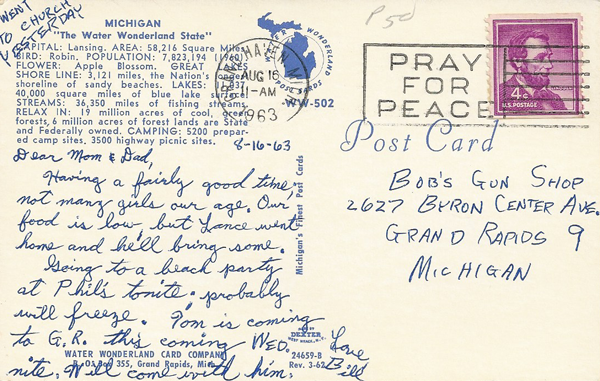 WENT
TO CHURCH
YESTERDAY
MICHIGAN
"The Water Wonderland State"
CAPITAL: Lansing. AREA: 58,216 Square Miles
BIRD: Robin. POPULATION: 7,823,194 (1960)
FLOWER: Apple Blossom. GREAT LAKES
SHORE LINE: 3,121 miles, the Nation's longest
shoreline of sandy beaches. LAKES: 11,037
40,000 square miles of blue lake
STREAMS: 36,350 miles of fishing streams.
RELAX IN: 19 million acres of cool, green
forests, 6 million acres of forest lands are State
and Federally owned. CAMPING: 5200 prepar-
ed camp sites. 3500 highway picnic sites.
8-16-63
Dear Mom & Dad,
Having a fairly good time,
not many girls our age. Our
food is low, but Lance went
home and he'll bring some.
Going to a beach party
at Phil's tonite. probably
will freeze. Tom is coming
to G.R. this coming WED.
nite. Will come with him.
Love
Bill
WATER WONDERLAND CARD COMPANY
P. O. Box 355, Grand Rapids, Mich.
WATER WONDERLAND
WW-502
HAVEN
AUG 16
11-AM
1963
Michigan's Finest Post Cards
MADE BY
DEXTER
WEST NYACK, N.Y.
24659-B
Rev. 3-62
P50
PRAY
FOR
PEACE
4¢
U.S. POSTAGE
Post Card
BOB'S GUN SHOP
2627 BYRON CENTER AVE.
GRAND RAPIDS 9
MICHIGAN